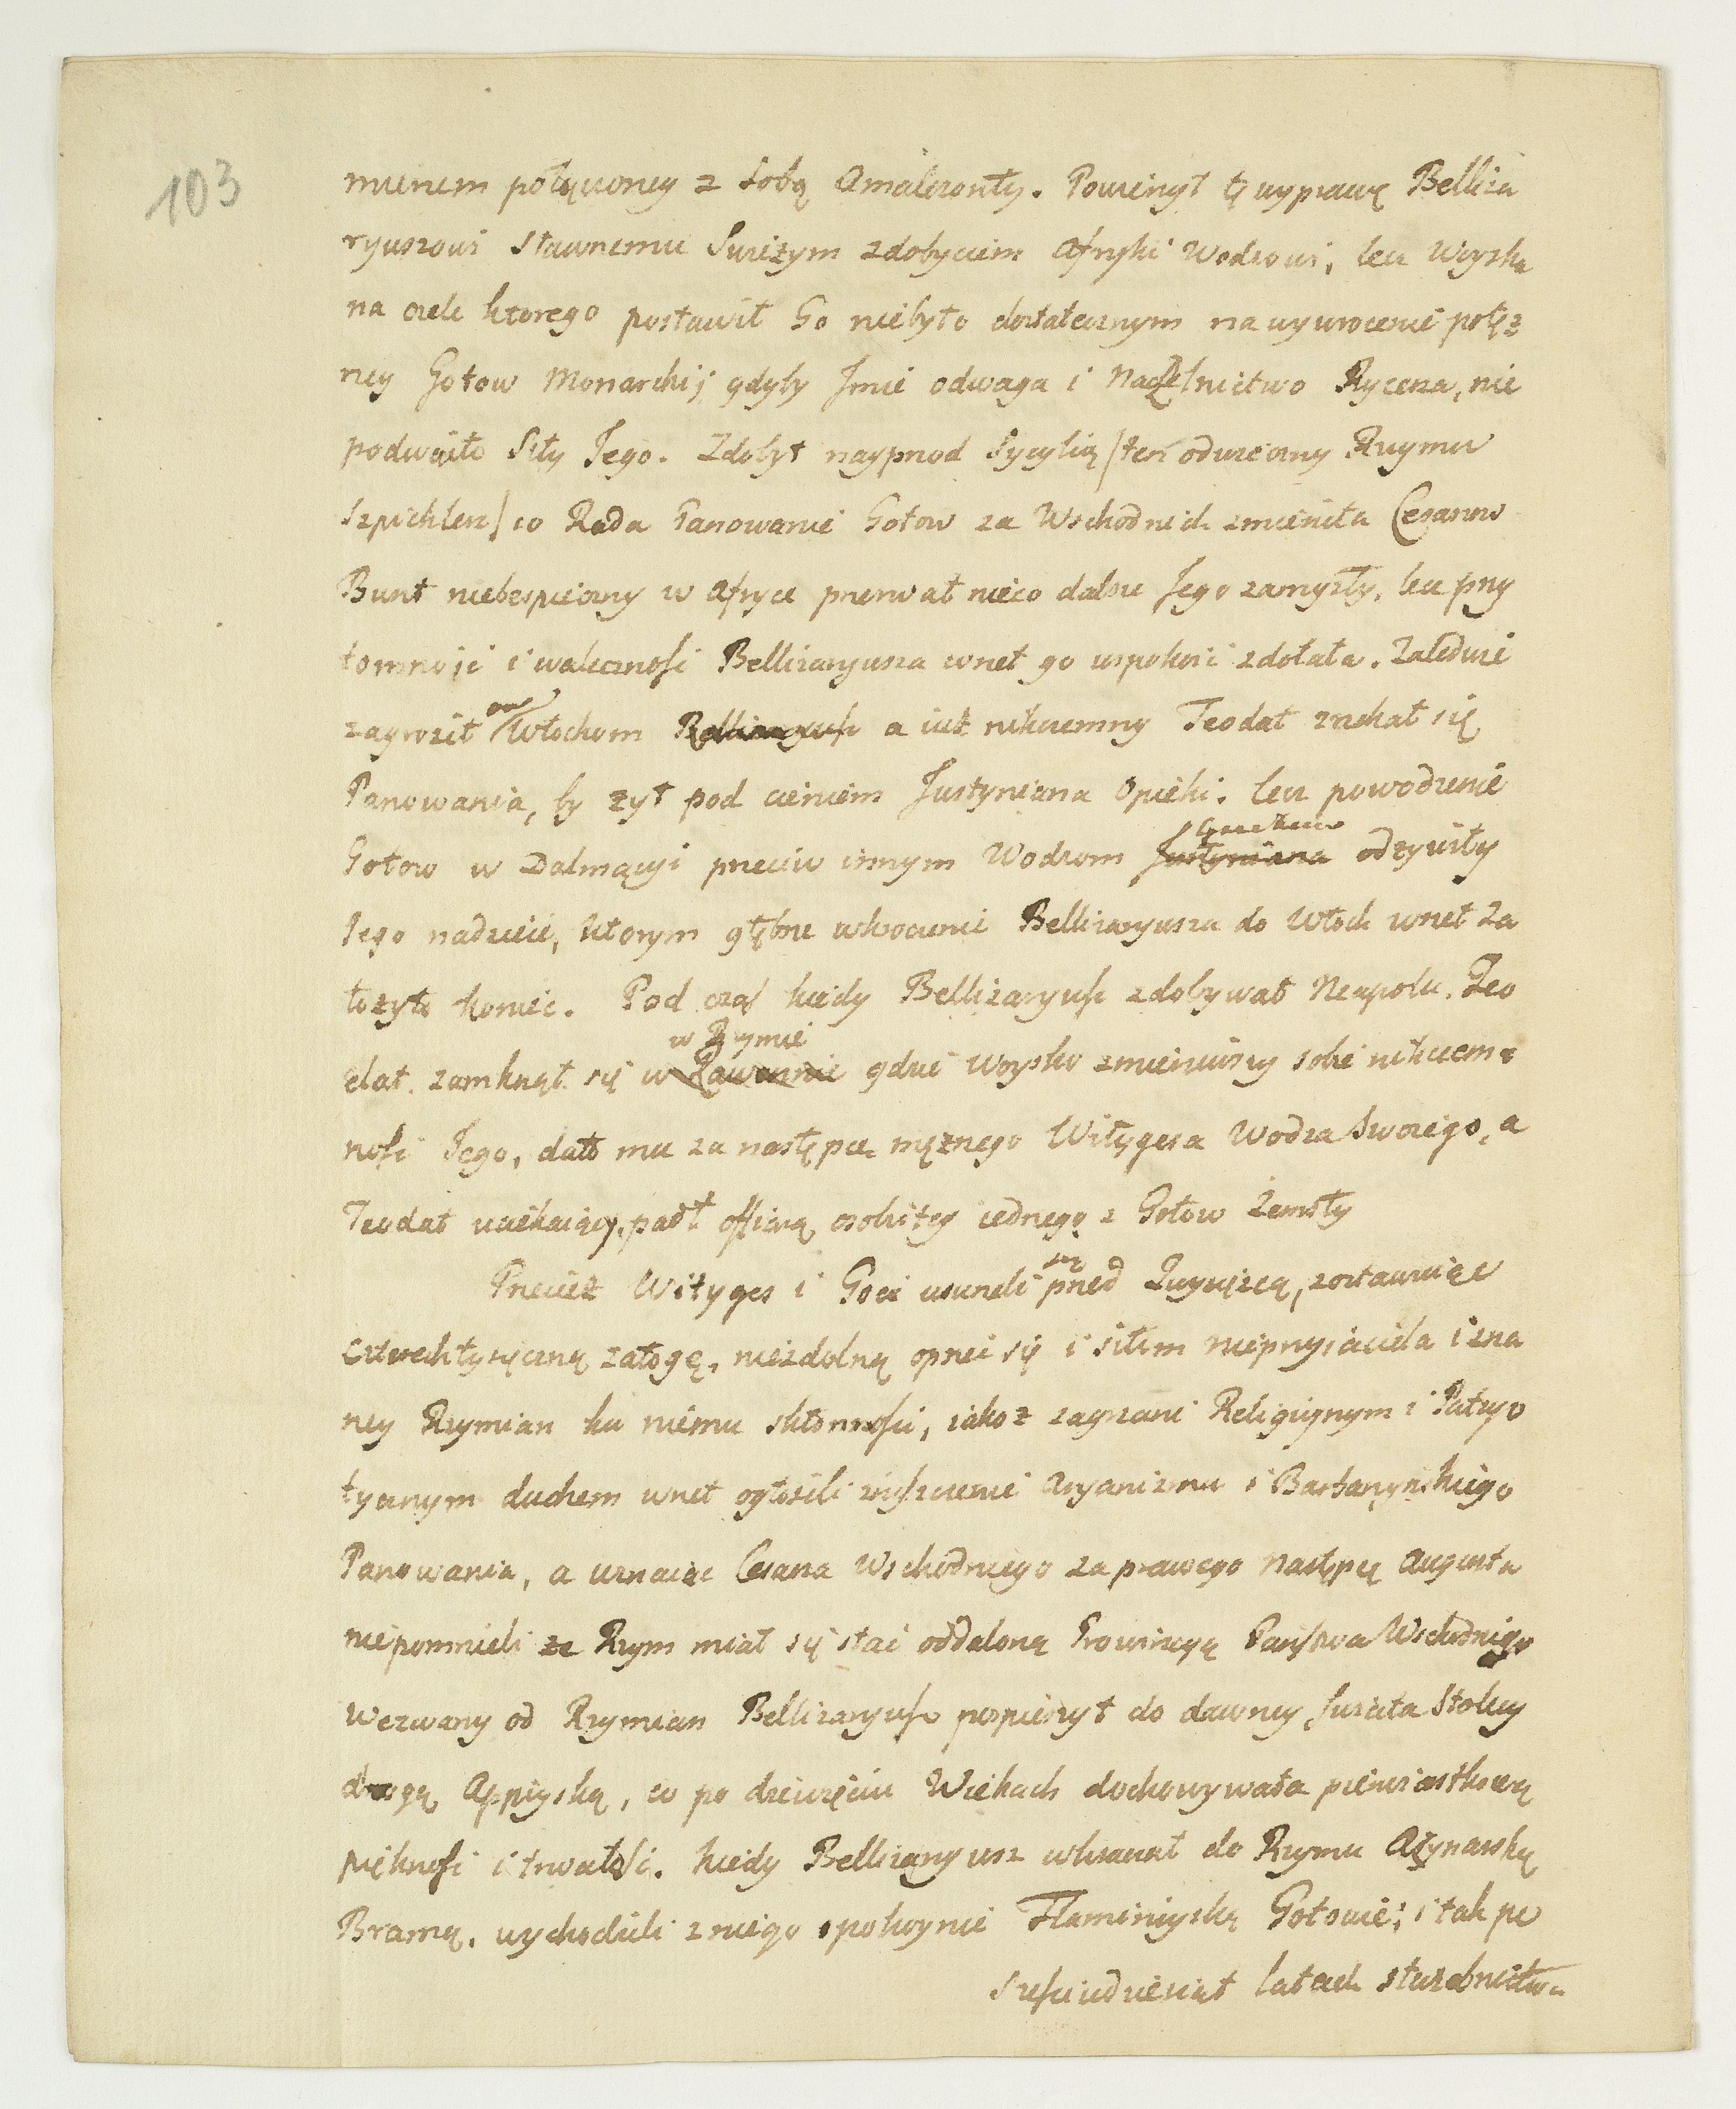 103
mienem połączoney z Sobą Amalezonty. Powierzył tę wyprawę Belliza
ryuszowi sławnemu świeżym zdobyciem Afryki Wodzowi, lecz Woyska
na czele ktorego postawił Go niebyło dostatecznym na wywrocenie potęż
ney Gotow Monarchij gdyby Jmie odwaga i Naczelnictwo Rycerza, nie
podwoiło Siły Jego. Zdobył nayprzod Sycylią /ten odwieczny Rzymu
Szpichlerz/ co Rada Panowanie Gotow za Wschodnich zmieniła Cezarow
Bunt niebespieczny w Afryce przerwał nieco dalsze Jego zamysły, lecz przy
tomność i waleczność Bellizaryusza wnet go uspokoić zdołała. Zaledwie
zagroził on Włochom Bellizaryusz a iuż nikczemny Teodat zrzekał się
Panowania, by żył pod cieniem Justyniana Opieki. lecz powodzenie
Greckim
Gotow w Dalmacyi przeciw innym Wodzom Justyniana odżywiły
Jego nadzieie, ktorym głębsze wkroczenie Bellizaryusza do Włoch wnet za
łożyło koniec. Pod czas kiedy Bellizaryusz zdobywał Neapolu. Teo
w Rzymie
dat zamknął się w Rawennie gdzie woysko zmierziwszy sobie nikczem
ność Jego, dało mu za następcę mężnego Witygesa Wodza Swoiego, a
Teodat uciekaiący, padł ofiarą osobistey iednego z Gotow Zemsty
Przecież Wityges i Goci usuneli się przed Zwyciężcą, zostawuiąc
czterechtysięczną załogę, niezdolną oprzeć się i siłom nieprzyiaciela i zna
ney Rzymian ku niemu skłonności, iakoż zagrzani Religiynym i Patryo
tycznym duchem wnet ogłosili zniszczenie Aryanizmu i Barbarzyńskiego
Panowania, a uznaiąc Cesarza Wschodniego za prawego Następcę Augusta
niepomnieli że Rzym miał się stać oddaloną Prowincyą Państwa Wschodniego
Wezwany od Rzymian Bellizaryusz pospieszył do dawney świata Stolicy
drogą Appiyską, co po dziewięciu Wiekach dochowywała pierwiastkową
piękność i trwałość. kiedy Bellizaryusz wkraczał do Rzymu Azynarską
Bramą, wychodzili z niego spokoynie Flaminiyską Gotowie; i tak po
sześciudziesiąt latach służebnictwa